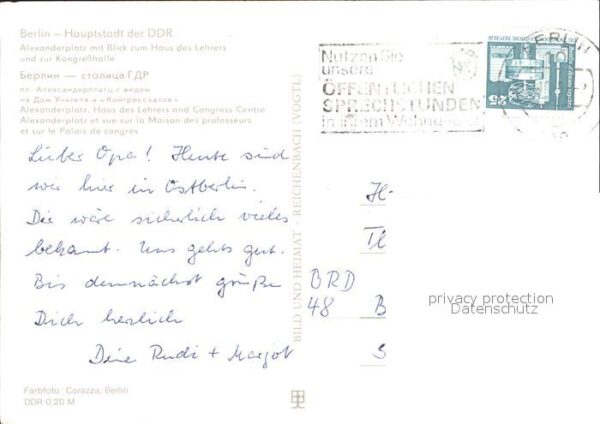 Berlin — Hauptstadt der DDR
Alexanderplatz mit Blick zum Haus des Lehrers
und zur Kongreßhalle
Берлин — столица ГДР
пл. Александерплатц с видом
на Дом Учителя и «Конгрессхалле»
Alexanderplatz, Haus des Lehrers and Congress Centre
Alexanderplatz et vue sur la Maison des professeurs
et sur le Palais de congrès
Lieber Opa! Heute sind
wir hier in Ostberlin.
Dir wäre sicherlich vieles
bekannt. Uns gehts gut.
Bis demnächst grüßen
Dich herzlich
Deine Rudi + Margot
Farbfoto: Corazza, Berlin
DDR 0,20 M
BILD UND HEIMAT · REICHENBACH (VOGTL)
Nutzen Sie
unsere
ÖFFENTLICHEN
SPRECHSTUNDEN
in Ihrem Wohngebiet
BERLIN
25
H-
Tl
BRD
48 B
S
privacy protection
Datenschutz